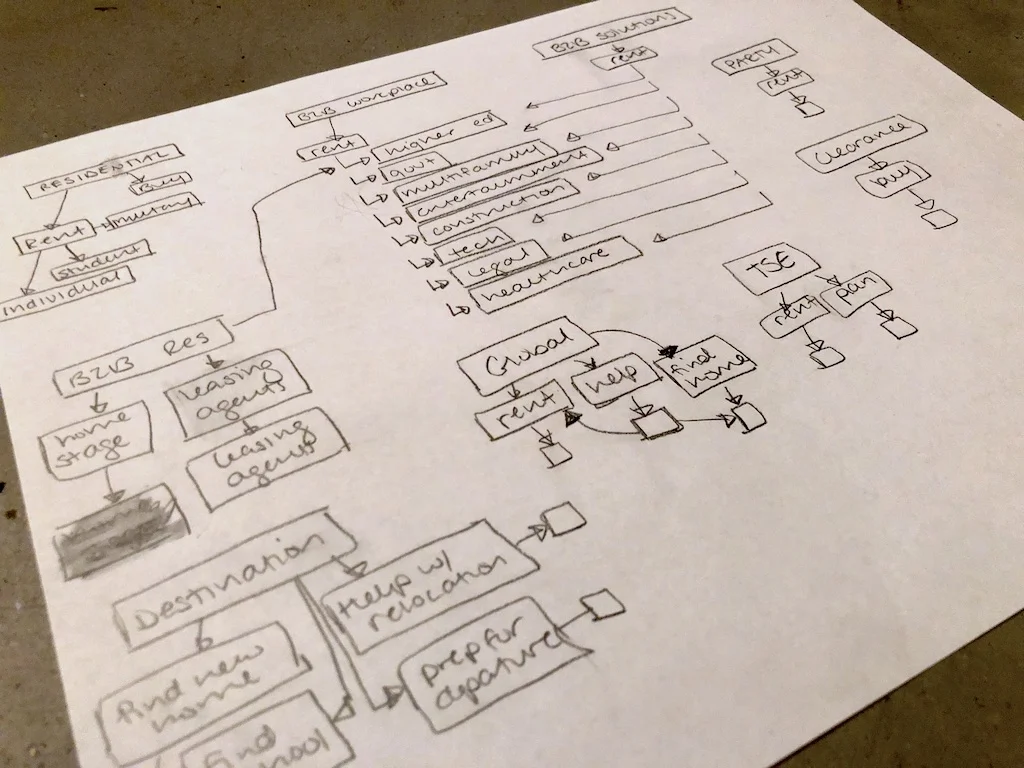 RESIDENTIAL
Buy
Rent
military
student
individual
B2B workplace
rent
higher ed
gov't
multifamily
entertainment
construction
tech
legal
healthcare
B2B solutions
rent
PARTY
rent
Clearance
buy
TSE
rent
pan
B2B Res
home
stage
leasing
agents
leasing
agents
Global
rent
help
find
home
Destination
Help w/
relocation
prep for
depature
find new
home
find